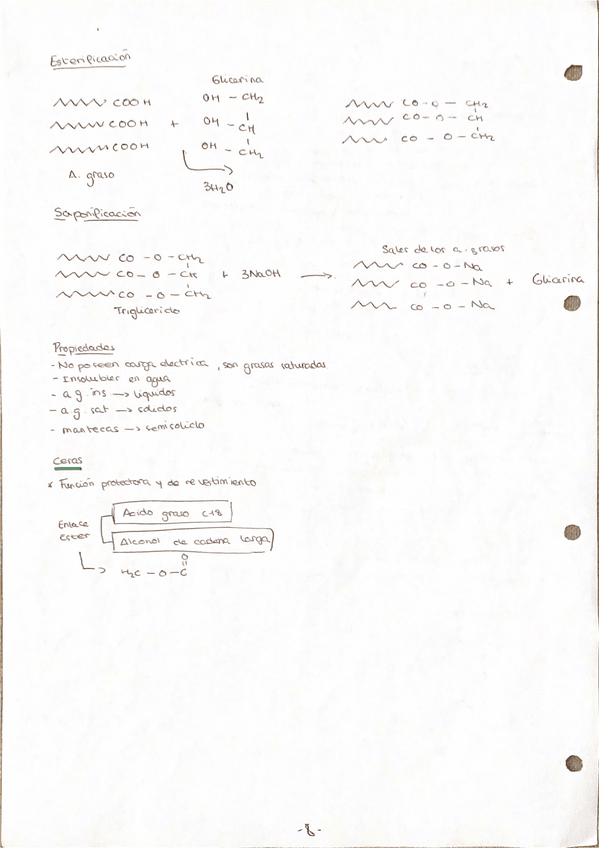 Esterificación
Glicerina
COOH OH - CH2 CO - O - CH2
COOH + OH - CH CO - O - CH
COOH OH - CH2 CO - O - CH2
A. graso
3H2O
Saponificación
Sales de los a. grasos
CO - O - CH2 CO - O - Na
CO - O - CH + 3NaOH → CO - O - Na + Glicerina
CO - O - CH2 CO - O - Na
Triglicerido
Propiedades
- No poseen carga electrica, son grasas saturadas
- Insolubles en agua
- a.g. ins → liquidos
- a.g. sat → solidos
- mantecas → semisolido
Ceras
* Función protectora y de revestimiento
Acido graso C18
Enlace
Ester
Alcohol de cadena larga
O
H2C - O - C
- 8 -